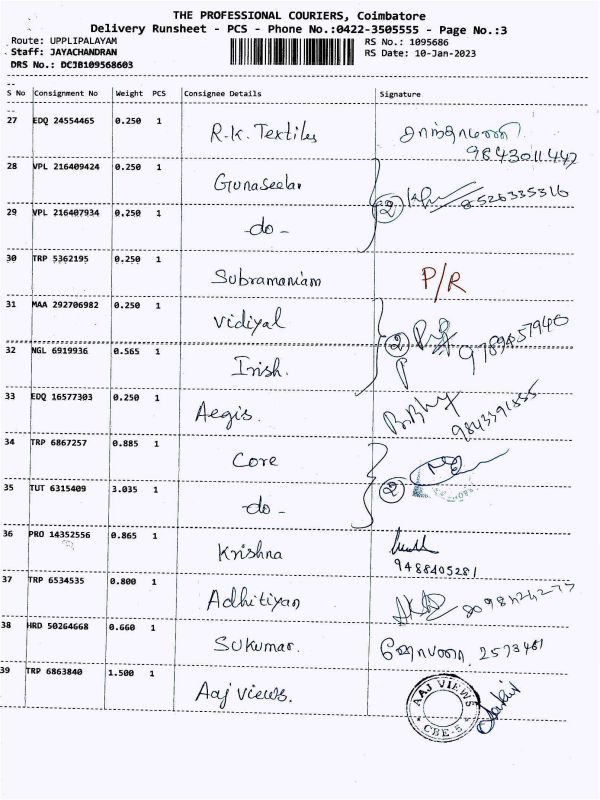 THE PROFESSIONAL COURIERS, Coimbatore
Delivery Runsheet - PCS - Phone No.:0422-3505555 - Page No.:3
Route: UPPLIPALAYAM RS No.: 1095686
Staff: JAYACHANDRAN RS Date: 10-Jan-2023
DRS No.: DCJB109568603
S No Consignment No Weight PCS Consignee Details Signature
27 EDQ 24554465 0.250 1 R.K. Textiles
9843011447
28 VPL 216409424 0.250 1 Gunaseelan
② 8526335316
29 VPL 216407934 0.250 1 -do-
30 TRP 5362195 0.250 1 Subramaniam P/R
31 MAA 292706982 0.250 1 Vidiyal
② 9789457940
32 NGL 6919936 0.565 1 Irish.
33 EDQ 16577303 0.250 1 Aegis. 9843391885
34 TRP 6867257 0.885 1 Core
②
35 TUT 6315409 3.035 1 -do-
36 PRO 14352556 0.865 1 Krishna
9488405281
37 TRP 6534535 0.800 1 Adhitiyan
38 HRD 50264668 0.660 1 Sukumar. 2573461
39 TRP 6863840 1.500 1 Aaj Views. AAJ VIEWS CBE-5